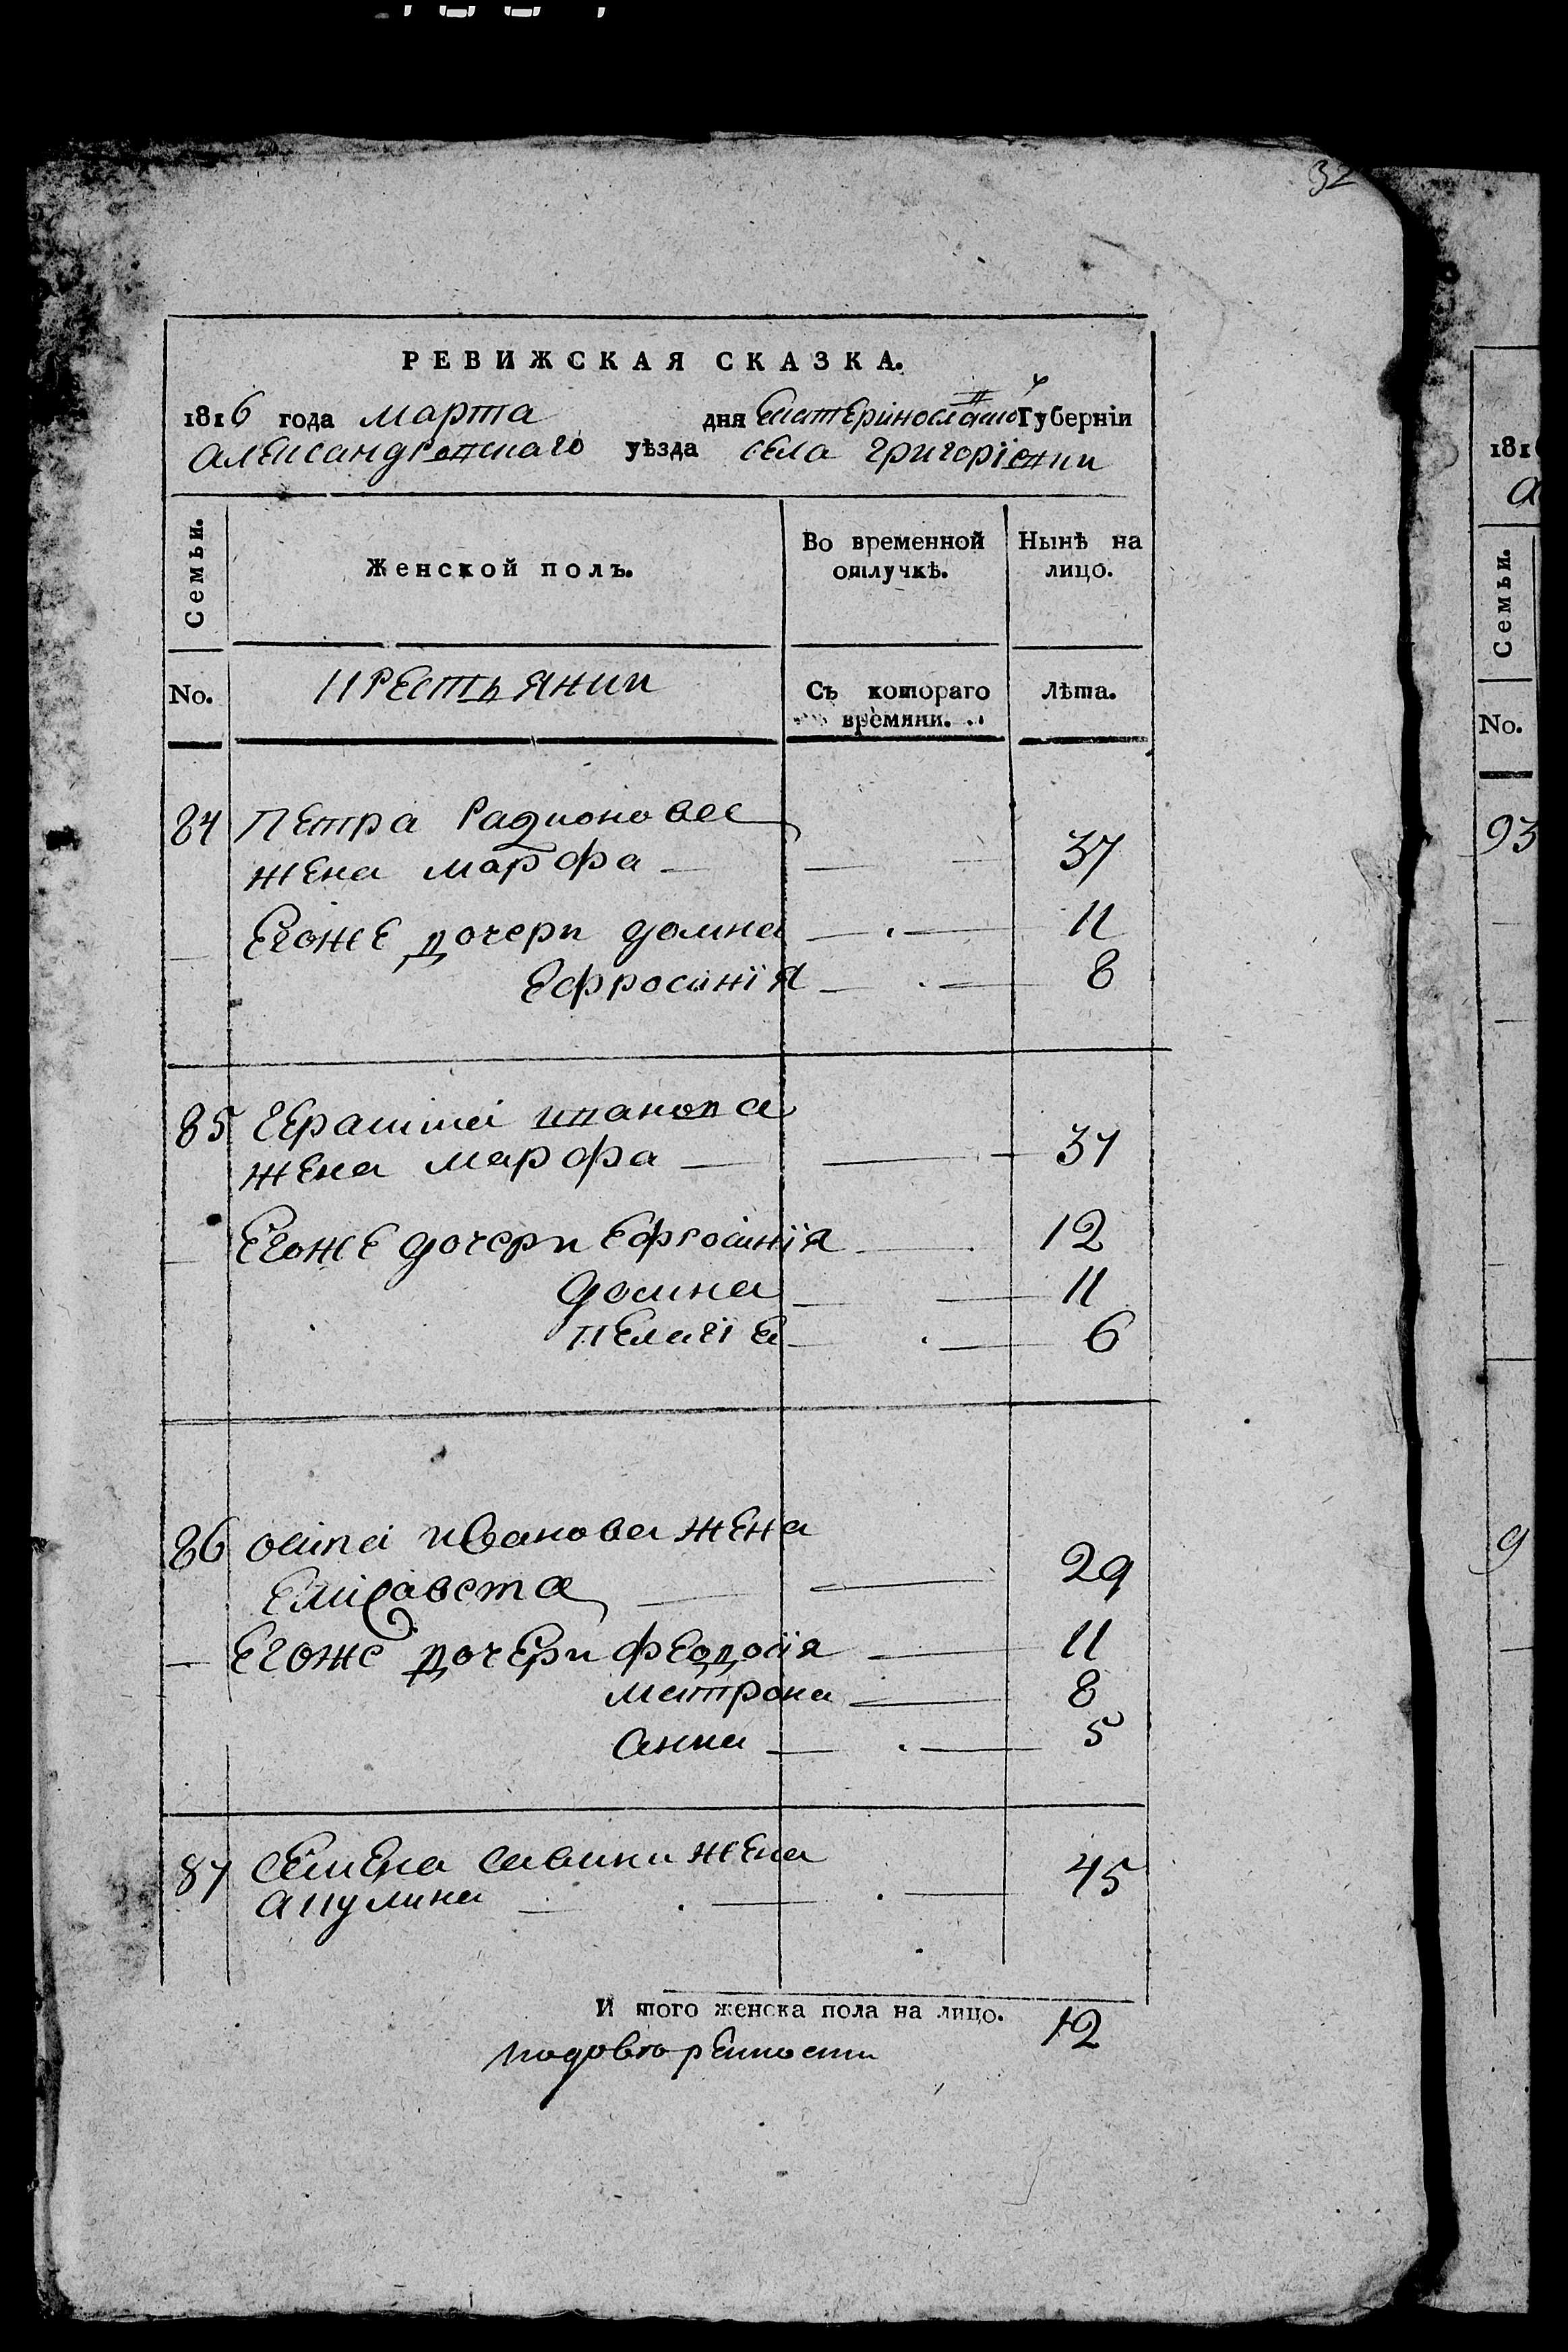 32
РЕВИЖСКАЯ СКАЗКА.
1816 года марта дня Екатериносла́вской Губерніи
александровскаго уѣзда села григоріевки
Семьи.
Женской полъ.
Во временной отлучкѣ.
Нынѣ на лицо.
No.
крестьянки
Съ котораго времяни.
Лѣта.
84 Петра Радионова
жена марфа — 37
Егоже дочери домна — 11
Ефросинія — 8
85 Герасима иванова
жена марфа — 37
Егоже дочери Ефросинія — 12
домна — 11
пелагіа — 6
86 осипа иванова жена
Елисавета — 29
— Егоже дочери феодосія — 11
матрона — 8
анна — 5
87 семена савики жена
акулина — 45
И того женска пола на лицо. 12
1816
а
Семьи.
No.
93
9